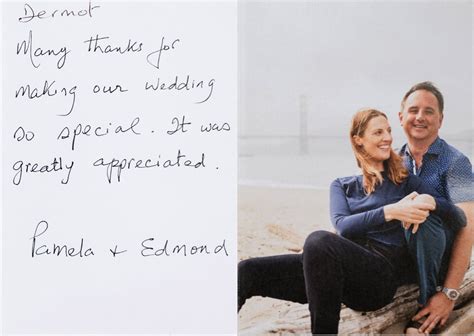 Dermot
Many thanks for
making our wedding
so special. It was
greatly appreciated.
Pamela + Edmond